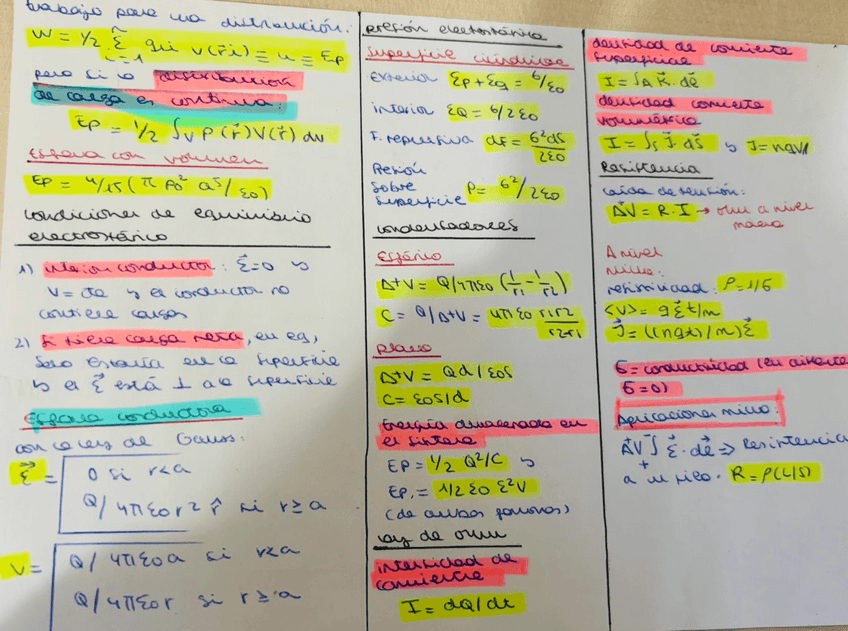 trabajo para una distribución:
W = 1/2 Σ qi V(r⃗i) ≡ u ≡ Ep
i=1
pero si la distribución
de carga es continua:
Ep = 1/2 ∫V ρ(r⃗)V(r⃗) dv
Esfera con volumen
Ep = 4/15 (π ρ0² a⁵/ε0)
condiciones de equilibrio
electrostático
1) interior conductor: ε⃗=0 ↳
V = cte ↳ el conductor no
contiene cargas
2) Si tiene carga neta, en eq,
solo estaría en la superficie
↳ el ε⃗ está ⊥ a la superficie
Esfera conductora
con la ley de Gauss:
ε⃗ = 0 si r<a
Q/4πε0r² r̂ si r≥a
V = Q/4πε0a si r<a
Q/4πε0r si r≥a
presión electrostática
Superficie cilíndrica
Exterior Ep+Eq = σ/ε0
interior EQ = σ/2ε0
F. repulsiva dF = σ²dS/2ε0
Presión
sobre
superficie P = σ²/2ε0
condensadores
Esférico
Δ+V = Q/4πε0 (1/r1 - 1/r2)
C = Q/Δ+V = 4πε0 r1r2/r2-r1
plano
Δ+V = Qd/ε0S
C = ε0S/d
Energía almacenada en
el sistema
EP = 1/2 Q²/C ↳
EP, = 1/2 ε0 ε²V
(de ambas formas)
ley de ohm
intensidad de
corriente
I = dQ/dt
densidad de corriente
superficial
I = ∫A K⃗. dℓ⃗
densidad corriente
volumétrica
I = ∫S J⃗. dS⃗ ↳ J = nqVd
Resistencia
caída de tensión:
Δ+V = R.I → ohm a nivel
macro
A nivel
micro:
resistividad: ρ=1/σ
<V> = qε⃗t/m
J⃗ = ((nq²t)/m)ε⃗
σ = conductividad (en aislante
σ=0)
Aplicaciones micro:
Δ+V ∫ ε⃗.dℓ⃗ => Resistencia
a un hilo. R = ρ(L/S)